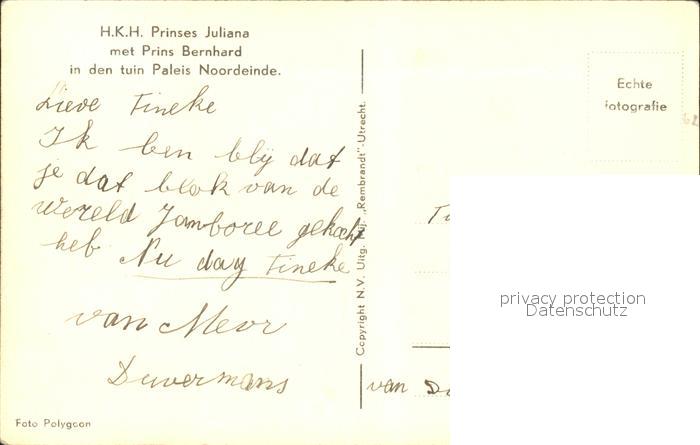 H.K.H. Prinses Juliana
met Prins Bernhard
in den tuin Paleis Noordeinde.
Lieve Tineke
Ik ben blij dat
je dat blok van de
wereld Jamboree gekocht
heb Nu day Tineke
van Meor
Duvermans
Foto Polygoon
Copyright N.V. Uitg. Mij. „Rembrandt"-Utrecht.
Echte
fotografie
van
privacy protection
Datenschutz